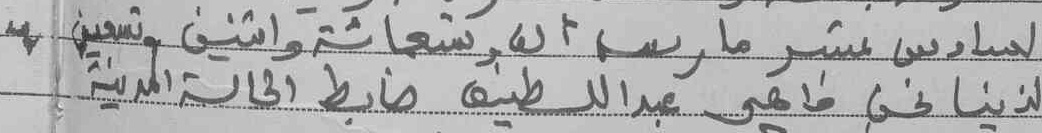 السادس عشر مارس ألف وتسعمائة واثنين وتسعين
لدينا نحن فاهي عبد اللطيف ضابط الحالة المدنية